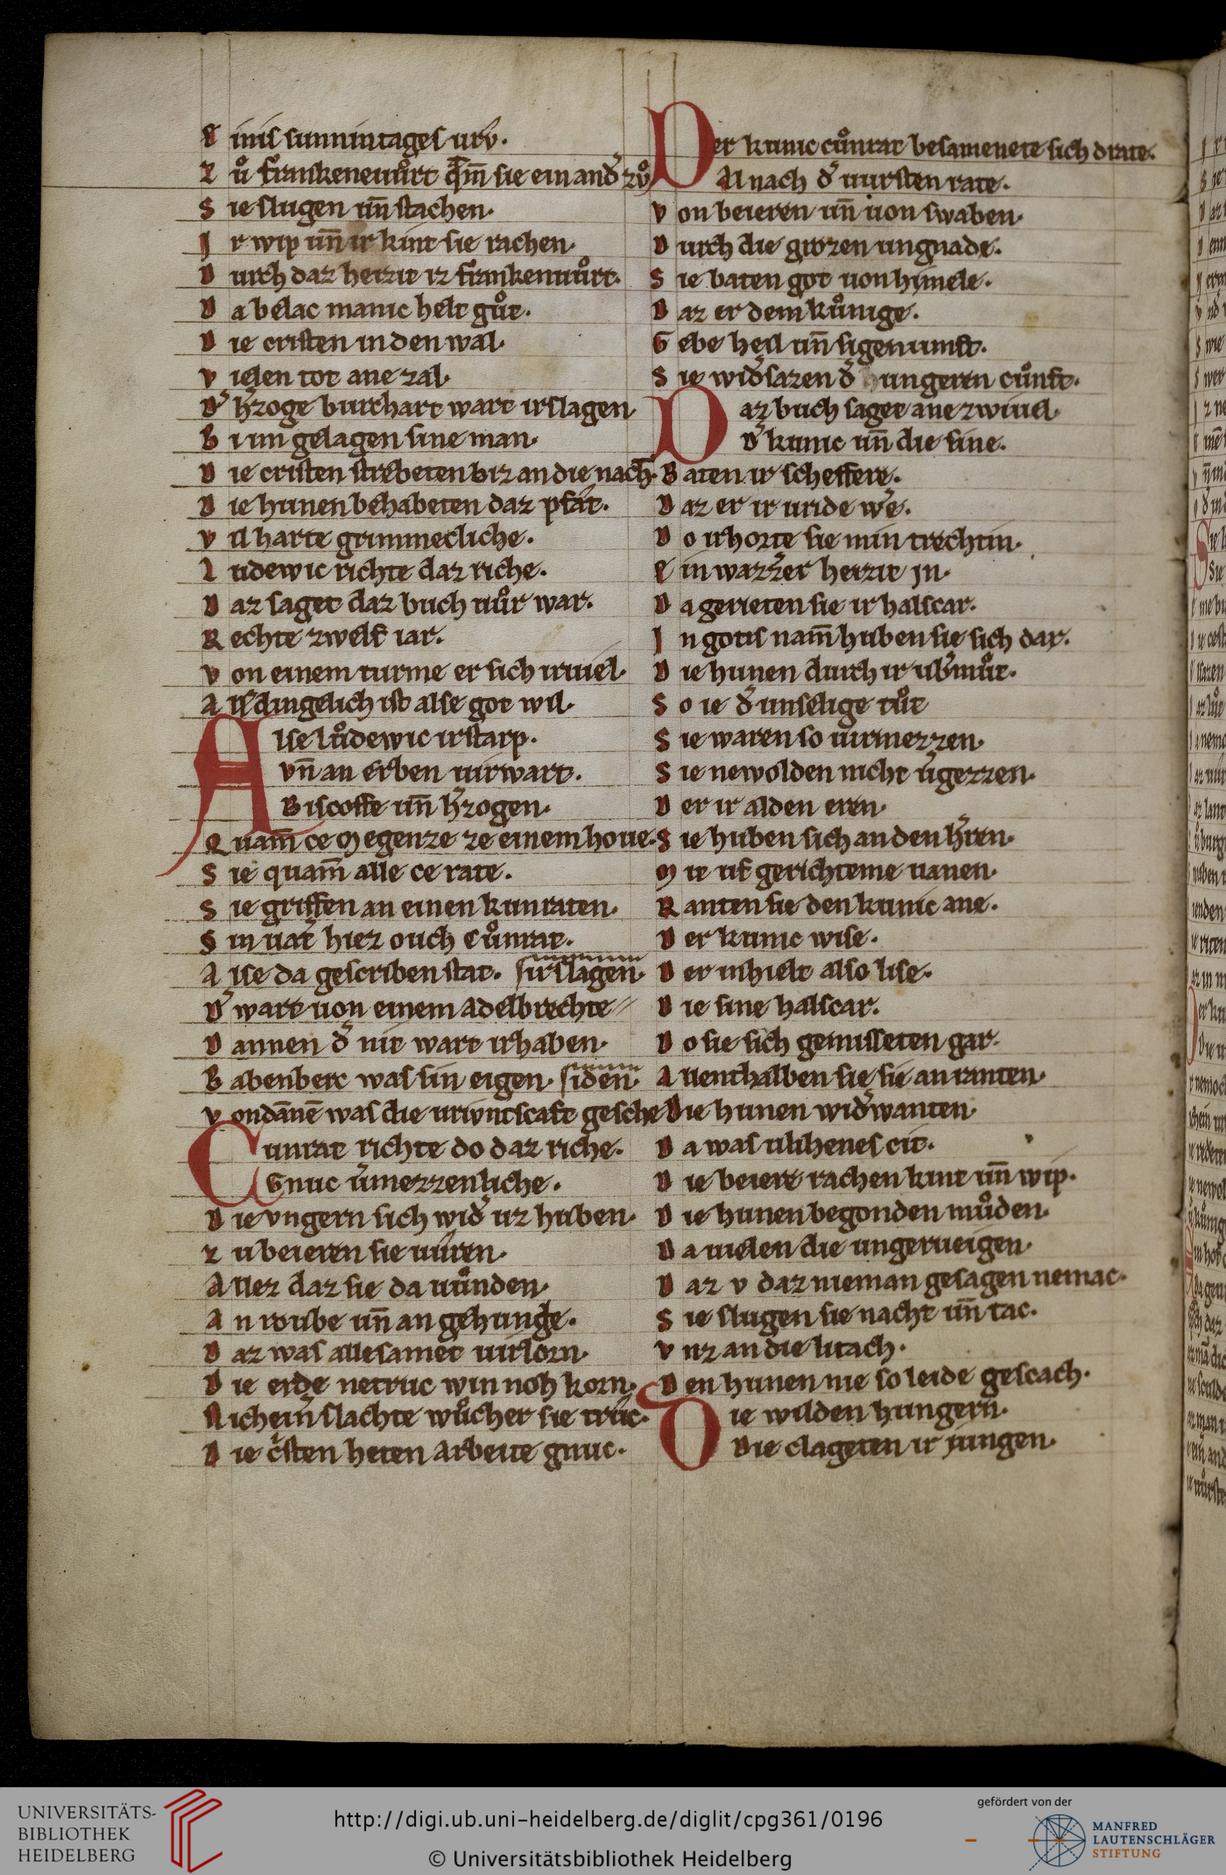 E inis sunnintages urv.
Z uͦ frankeneuuͦrt q̄m̄ sie ein and᾽ zuͦ
S ie slugen un̄ stachen.
I r wip un̄ ir kint sie rachen.
D urch daz heizit iz frankenuuͦrt.
D a belac manic helt guͦt.
D ie cristen in den wal.
V ielen tot ane zal.
D᾽ h᾽zoge burchart wart irslagen
B i im gelagen sine man.
D ie cristen strebeten biz an die nach.
D ie hunen behabeten daz pfat.
V il harte grimmecliche.
L udewic richte daz riche.
D az saget daz buch uuͦr war.
R echte zwelf iar.
V on einem turme er sich iruiel.
A lle dingelich ist alse got wil.
A lse luͦdewic irstarp.
Vn̄ an erben uirwart.
Biscoffe un̄ h᾽zogen.
Q uam̄ ce Megenze ze einem houe.
S ie quam̄ alle ce rate.
S ie griffen an einen kunraten.
S in uat᾽ hiez ouch Cuͦnrat.
A lse da gescriben stat. sirslagen.
D᾽ wart uon einem adelbrechte
D annen d᾽ nit wart irhaben.
B abenberc was sin eigen. siden.
V on dānē was die uriwntscaft gesche
Cunrat richte do daz riche.
Gnuc u᾽mezzenliche.
D ie vngern sich wid᾽ uz huben.
Z u beieren sie uuren.
A llez daz sie da uuͦnden.
A n roube un̄ an gehunge.
D az was alle samet uirlorn.
D ie erde netruc win noh korn.
N ichein᾽ slachte wuͦcher sie truc.
D ie c᾽sten heten arbeite gnuc.
Der kunic cuͦnrat besamenete sich drate.
Al nach d᾽ uursten rate.
V on beieren un̄ uon swaben.
D urch die grozen ungnade.
S ie baten got uon hymele.
D az er dem kuͦnige.
G ebe heil un̄ sigenunft.
S ie wid᾽sazen d᾽ ungeren cuͦnft.
Daz buch saget ane zwiuel.
D᾽ kunic un̄ die sine.
B aten ir scheffere.
D az er ir uride we᾽.
D o irhorte sie min trechtin.
E in wazzer heizit In.
D a gerieten sie ir halscar.
I n gotis nam̄ huben sie sich dar.
D ie hunen durch ir ub᾽muͦt.
S o ie d᾽ unselige tuͦt
S ie waren so uirmezzen.
S ie newolden nicht u᾽gezzen.
D er ir alden eren.
S ie huben sich an den h᾽ren.
M it uf gerichteme uanen.
R anten sie den kunic ane.
D er kunic wise.
D er inthielt also lise.
D ie sine halscar.
D o sie sich gemisseten gar.
A llenthalben sie sie an ranten.
D ie hunen wid᾽wanten.
D a was ulihenes cit.
D ie beiere rachen kint un̄ wip.
D ie hunen begonden muͦden.
D a uielen die ungerueigen.
D az v daz nieman gesagen nemac.
S ie slugen sie nacht un̄ tac.
V nz an die litach.
D en hunen nie so leide gescach.
Die wilden hungern.
Die clageten ir jungen.
UNIVERSITÄTS-
BIBLIOTHEK
HEIDELBERG
http://digi.ub.uni-heidelberg.de/diglit/cpg361/0196
© Universitätsbibliothek Heidelberg
gefördert von der
MANFRED
LAUTENSCHLÄGER
STIFTUNG